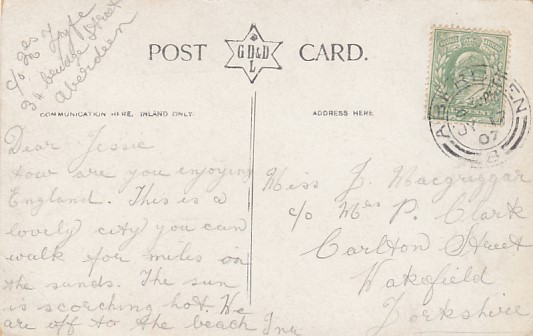 c/o Mrs Fyfe
34 Bridge Street
Aberdeen
POST CARD.
GD&D
L
COMMUNICATION HERE, INLAND ONLY.
ADDRESS HERE.
Dear Jessie
How are you enjoying
England. This is a
lovely city you can
walk for miles on
the sands. The sun
is scorching hot. We
are off to the beach
Miss J. Macgriggar
c/o Mrs P. Clark
Carlton Street
Wakefield
Yorkshire
ABERDEEN
JY
07